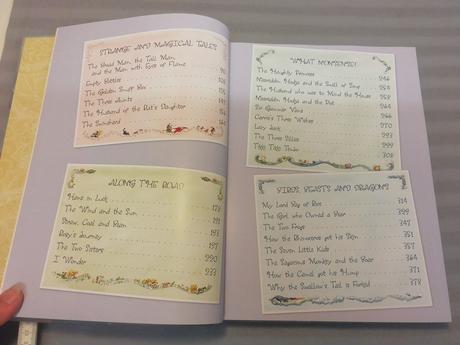 STRANGE AND MAGICAL TALES
The Broad Man, the Tall Man,
and the Man with Eyes of Flame
Empty Kettles
The Golden Snuff Box
The Three Aunts
The Husband of the Rat's Daughter
The Sunshard
ALONG THE ROAD
Hans in Luck
The Wind and the Sun
Straw, Coal and Bean
Rosy's Journey
The Two Sisters 220
I Wonder 233
WHAT NONSENSE!
The Naughty Princess 246
Nasreddin Hodja and the Smell of Soup
The Husband who was to Mind the House 258
Nasreddin Hodja and the Pot
Sir Gammer Vans 264
Connie's Three Wishes 266
Lazy Jack 270
The Three Sillies 293
Tikki Tikki Tembo 299
308
BIRDS, BEASTS AND DRAGONS
My Lord Bag of Rice 314
The Girl who Owned a Bear
The Two Frogs 347
How the Rhinoceros got his Skin 351
The Seven Little Kids 357
The Sagacious Monkey and the Boar 364
How the Camel got his Hump 371
Why the Swallow's Tail is Forked 378